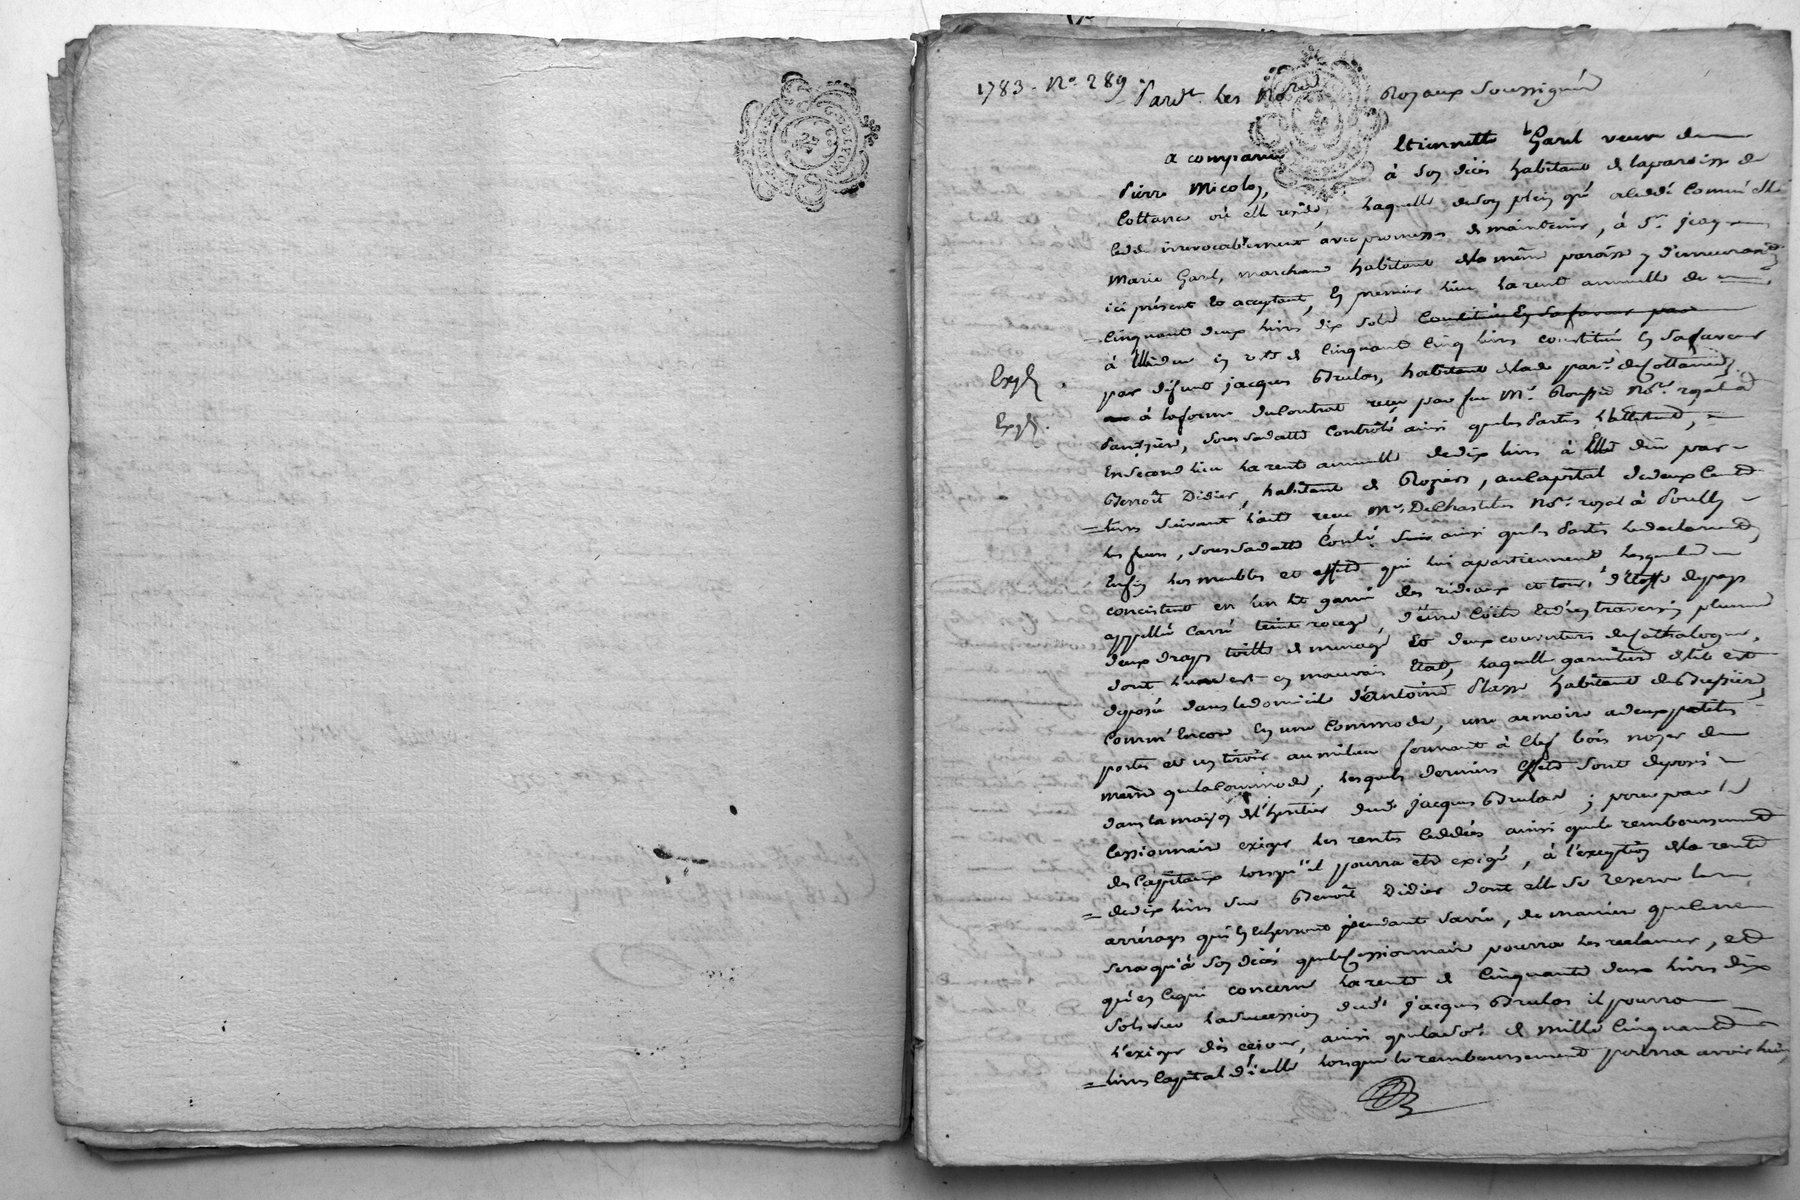 G. DE LYON
1783. N° 289 Pardt. Les Nores Royaux Soussignés
a comparu Etiennette Garil veuve de
Pierre Micolon, à son décès habitante de la paroisse de
Cottance où elle réside, Laquelle de son plein gré a cédé comme elle
cède irrevocablement avec promesse de maintenir, à Sr. jean
Marie Garil, marchand habitant de la même paroisse y demeurant
ici présent et acceptant, En premier lieu, la rente annuelle de
= cinquante deux livres dix sols
à Elle due constituée En sa faveur
par défunt jacques Brulas, habitant de lade parse. de Cottance,
à la forme du Contrat reçu par feu Me. Nore. royal à
Panissière, Sous sa datte Contrôlé ainsi que les Parties L'attestent,
En Second lieu La rente annuelle de dix livres à Elle düe par
Benoît Didier, habitant de Rozier, au Capital de deux Cent
= livres suivant L'acte reçu Me. De Chastelus Nore. royal à Poully
les feurs, Sous sa datte Conlé. ainsi que les Parties Le déclarent,
Enfin Les meubles et effets qui lui apartiennent Lesquels
concistent en un lit garni des rideaux et tour d'étoffe de pays
appellée Carré teinte rouge, d'une Coëte et d'un traversin plume
deux draps toille de menage et deux couvertures de Cathalogne,
dont l'une est en mauvais Etat, Laquelle garniture de lit est
déposée dans le domicile d'Antoine Plasse habitant de Bussière,
Comm' Encore En une Commode, une armoire a deux petites
portes et un tiroir au milieu fermant à Clef bois noyer de
même que la Commode, Lesquels derniers Effets Sont déposés
dans la maison de l'héritier dudt. jacques Brulas ; pour par le
Cessionnaire exiger les rentes Cédées ainsi que le remboursement
des Capitaux Lorsqu'il pourra etre exigé, à l'exception de la rente
= de dix livres sur Benoît Didier dont elle se reserve les
arrérages qui En Echerront pendant sa vie, de maniere que ce ne
sera qu'à son décès que le Cessionnaire pourra les reclamer, et
qu'en ce qui concerne La rente de Cinquante deux livres dix
sols sur La Succession dudt. jacques Brulas il pourra
l'exiger dès ce jour, ainsi que la de. de mille Cinquante
= livres Capital d'icelle Lorsque le remboursement pourra avoir lieu